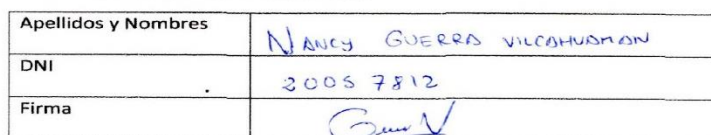 Apellidos y Nombres NANCY GUERRA VILCAHUAMAN
DNI 20057812
Firma